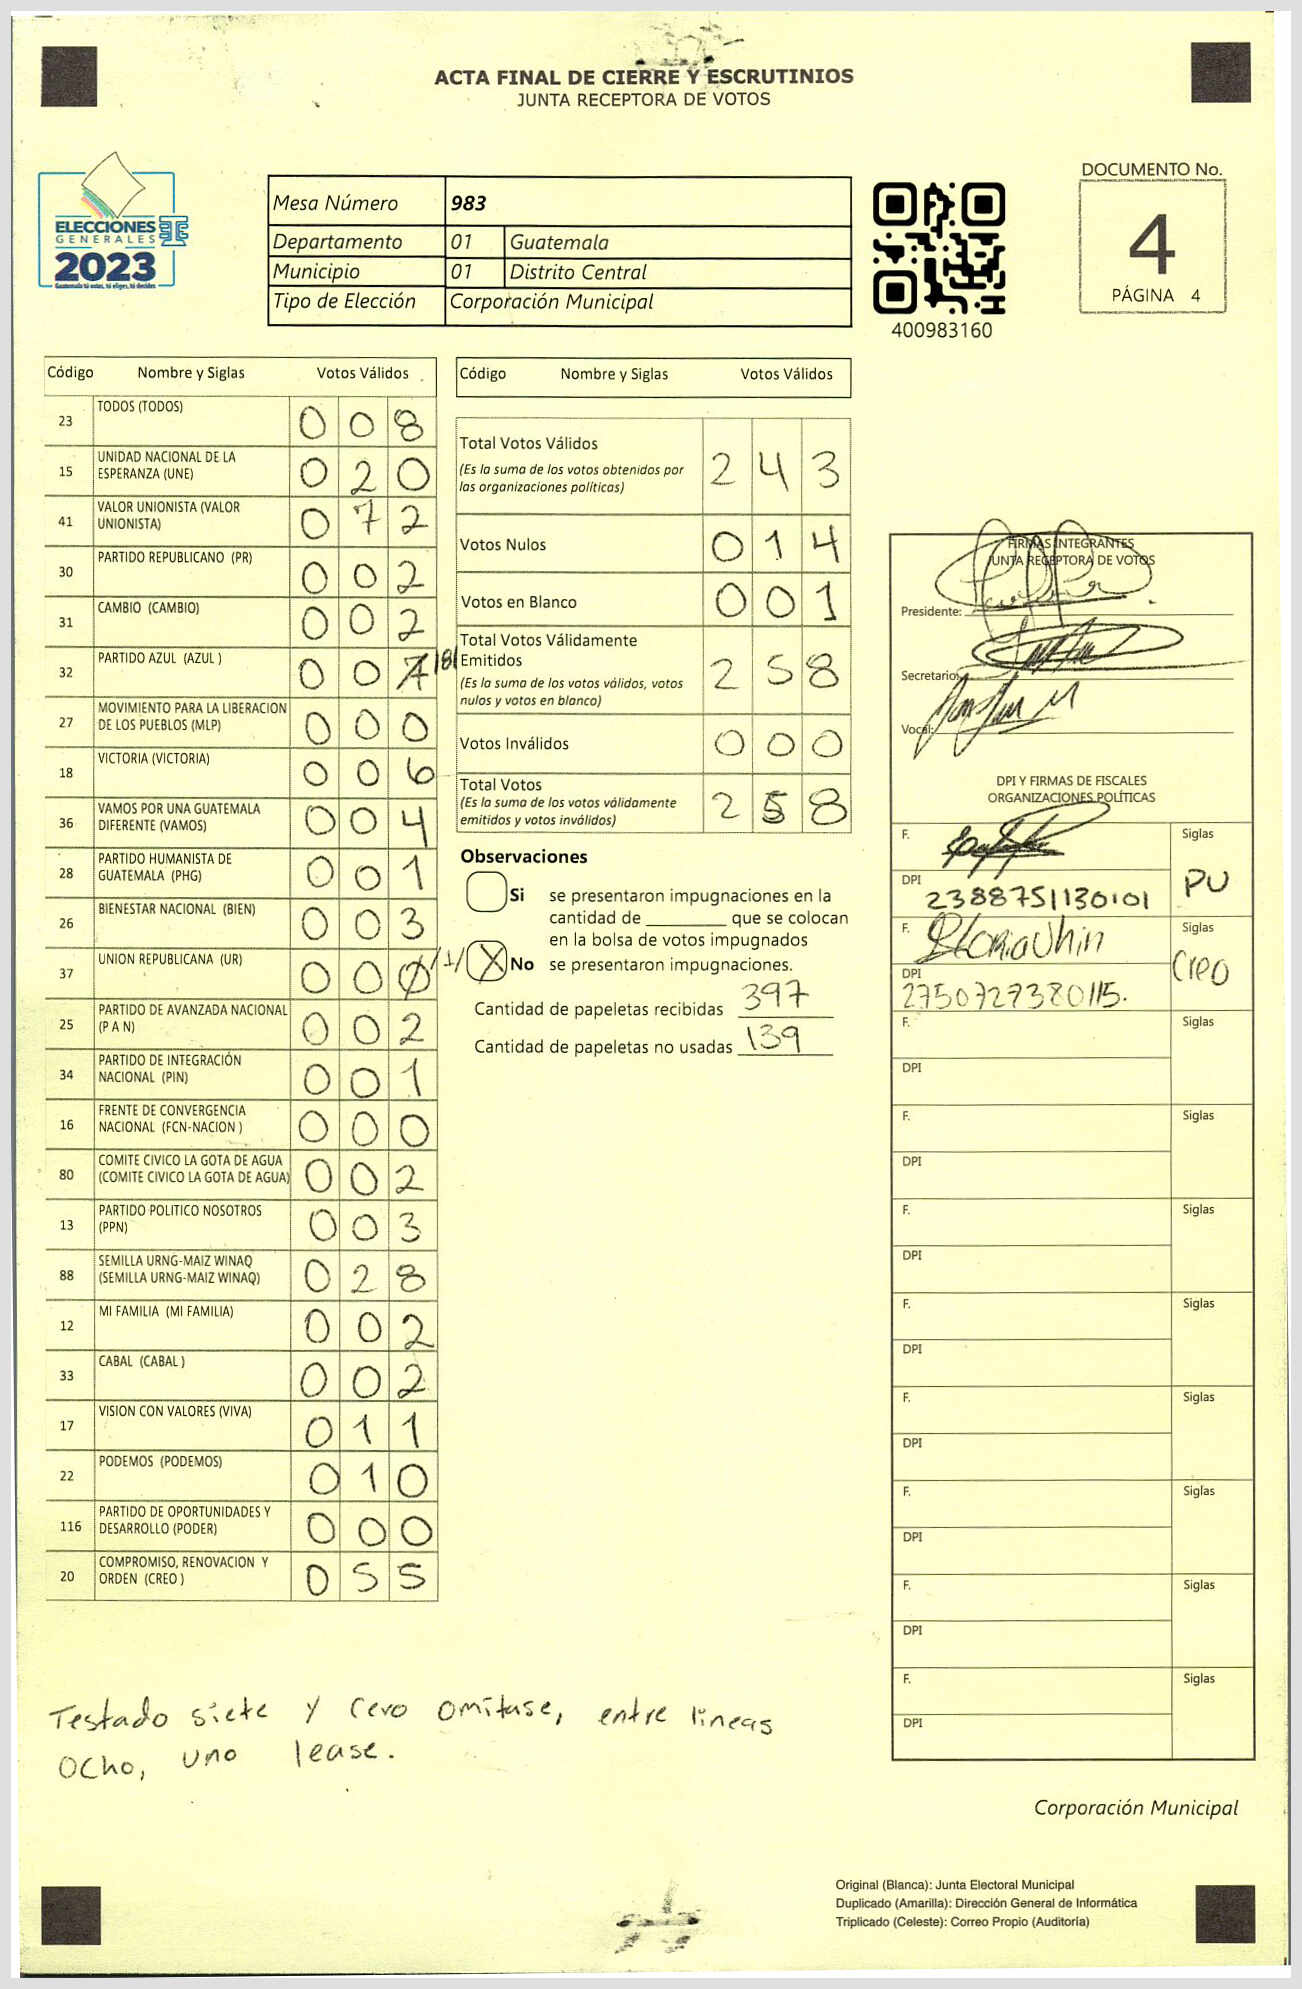 ACTA FINAL DE CIERRE Y ESCRUTINIOS
JUNTA RECEPTORA DE VOTOS
ELECCIONES
GENERALES
2023
Guatemala tú votas, tú eliges, tú decides
Mesa Número 983
Departamento 01 Guatemala
Municipio 01 Distrito Central
Tipo de Elección Corporación Municipal
400983160
DOCUMENTO No.
4
PÁGINA 4
Código Nombre y Siglas Votos Válidos
23 TODOS (TODOS) 0 0 8
15 UNIDAD NACIONAL DE LA
ESPERANZA (UNE) 0 2 0
41 VALOR UNIONISTA (VALOR
UNIONISTA) 0 7 2
30 PARTIDO REPUBLICANO (PR) 0 0 2
31 CAMBIO (CAMBIO) 0 0 2
32 PARTIDO AZUL (AZUL ) 0 0 7 /8/
27 MOVIMIENTO PARA LA LIBERACION
DE LOS PUEBLOS (MLP) 0 0 0
18 VICTORIA (VICTORIA) 0 0 6
36 VAMOS POR UNA GUATEMALA
DIFERENTE (VAMOS) 0 0 4
28 PARTIDO HUMANISTA DE
GUATEMALA (PHG) 0 0 1
26 BIENESTAR NACIONAL (BIEN) 0 0 3
37 UNION REPUBLICANA (UR) 0 0 0 /1/
25 PARTIDO DE AVANZADA NACIONAL
(P A N) 0 0 2
34 PARTIDO DE INTEGRACIÓN
NACIONAL (PIN) 0 0 1
16 FRENTE DE CONVERGENCIA
NACIONAL (FCN-NACION ) 0 0 0
80 COMITE CIVICO LA GOTA DE AGUA
(COMITE CIVICO LA GOTA DE AGUA) 0 0 2
13 PARTIDO POLITICO NOSOTROS
(PPN) 0 0 3
88 SEMILLA URNG-MAIZ WINAQ
(SEMILLA URNG-MAIZ WINAQ) 0 2 8
12 MI FAMILIA (MI FAMILIA) 0 0 2
33 CABAL (CABAL ) 0 0 2
17 VISION CON VALORES (VIVA) 0 1 1
22 PODEMOS (PODEMOS) 0 1 0
116 PARTIDO DE OPORTUNIDADES Y
DESARROLLO (PODER) 0 0 0
20 COMPROMISO, RENOVACION Y
ORDEN (CREO ) 0 5 5
Código Nombre y Siglas Votos Válidos
Total Votos Válidos 2 4 3
(Es la suma de los votos obtenidos por
las organizaciones políticas)
Votos Nulos 0 1 4
Votos en Blanco 0 0 1
Total Votos Válidamente
Emitidos 2 5 8
(Es la suma de los votos válidos, votos
nulos y votos en blanco)
Votos Inválidos 0 0 0
Total Votos 2 5 8
(Es la suma de los votos válidamente
emitidos y votos inválidos)
Observaciones
Si se presentaron impugnaciones en la
cantidad de ________ que se colocan
en la bolsa de votos impugnados
X No se presentaron impugnaciones.
Cantidad de papeletas recibidas 397
Cantidad de papeletas no usadas 139
FIRMAS INTEGRANTES
JUNTA RECEPTORA DE VOTOS
Presidente:
Secretario:
Vocal:
DPI Y FIRMAS DE FISCALES
ORGANIZACIONES POLÍTICAS
F. Siglas
DPI 2388751130101 PU
F. Siglas
DPI 2750727380115. Creo
F. Siglas
DPI
F. Siglas
DPI
F. Siglas
DPI
F. Siglas
DPI
F. Siglas
DPI
F. Siglas
DPI
F. Siglas
DPI
F. Siglas
DPI
Testado siete y cero omitase, entre lineas
ocho, uno lease.
Corporación Municipal
Original (Blanca): Junta Electoral Municipal
Duplicado (Amarilla): Dirección General de Informática
Triplicado (Celeste): Correo Propio (Auditoría)